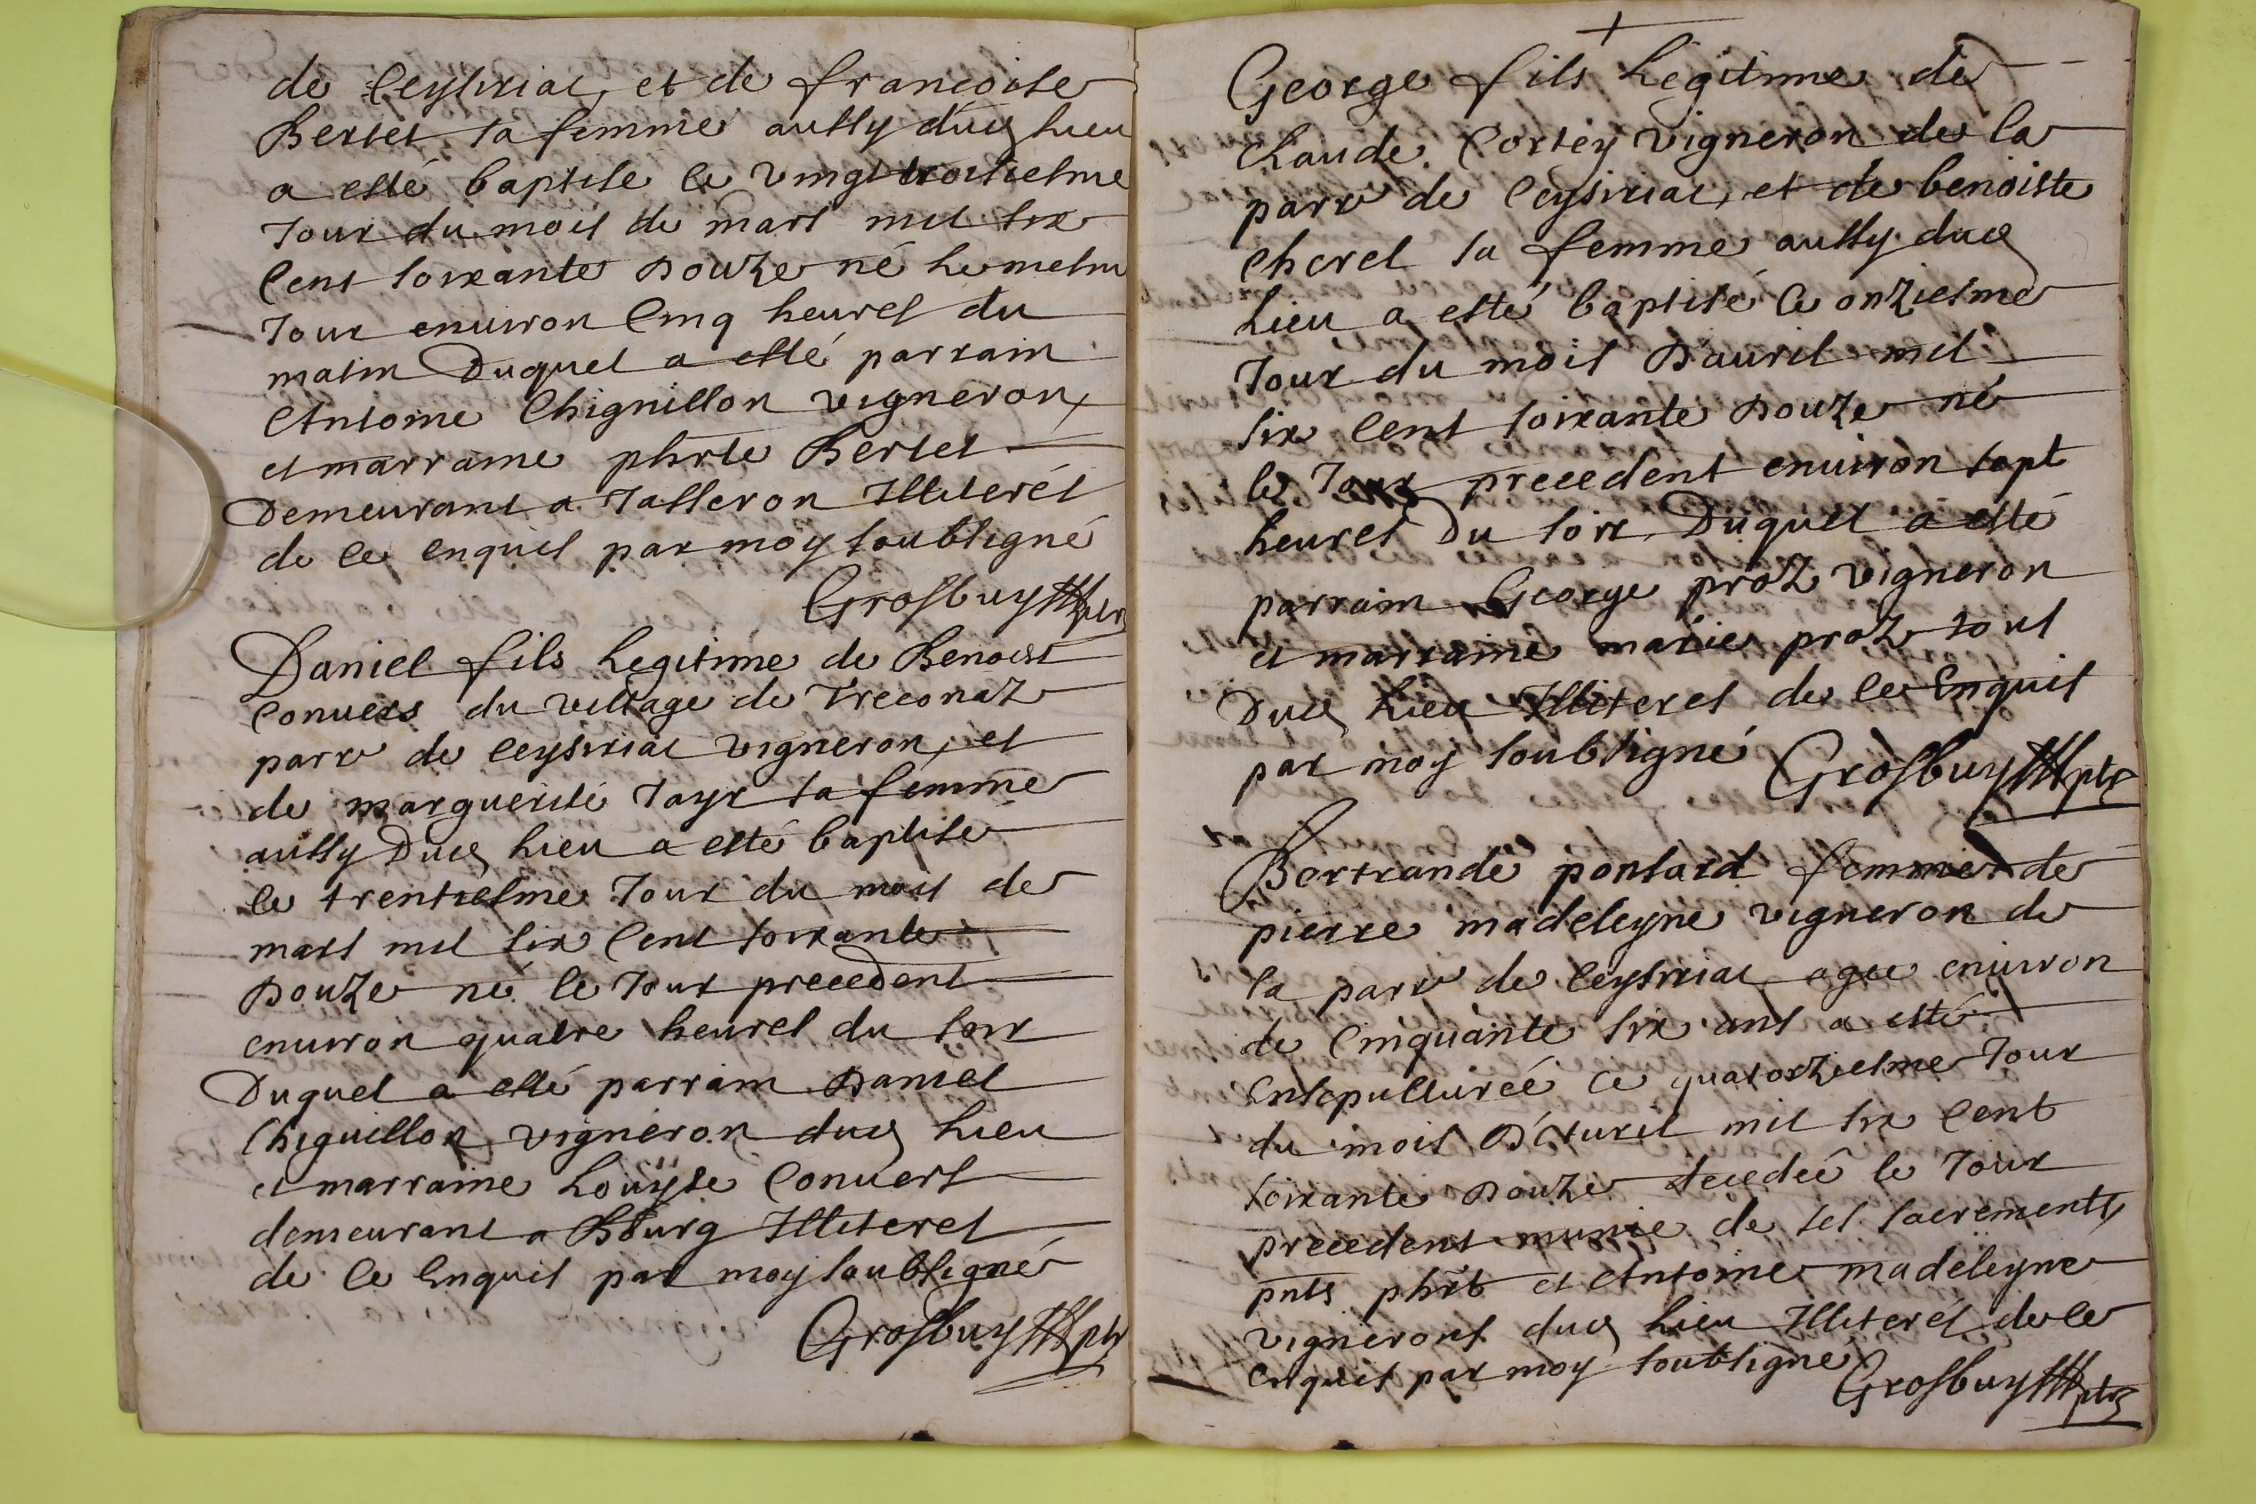 de Ceysiriac, et de francoise
Bertet sa femme aussy dud lieu
a esté baptise le vingt troisiesme
Jour du mois de mars mil six
Cent soixante Douze né le mesme
Jour enuiron Cinq heures du
matin Duquel a esté parrain
Antoine Chiguillon vigneron,
et marraine phrte Bertet
Demeurant a Jasseron Illiterés
de ce enquis par moy soubsigné
Grosbuy ptr
Daniel fils legitime de Benoist
Conuers du village de Treconaz
parr de Ceysiriac vigneron, et
de marguerite Jayr sa femme
aussy Dud lieu a esté baptisé
le trentiesme Jour du mois de
mars mil six Cent soixante
Douze né le Jour precedent
enuiron quatre heures du soir
Duquel a esté parrain Daniel
Chiguillon vigneron dud lieu
et marraine Louyse Conuers
demeurant a Bourg Illiteres
de ce Enquis par moy soubsigné
Grosbuy ptr
George fils legitime de
Claude Cortey vigneron de la
parr de Ceysiriac, et de benoiste
Cherel sa femme aussy dud
lieu a esté baptisé le onziesme
Jour du mois D'auril mil
six Cent soixante Douze né
le Jour precedent enuiron sept
heures Du soir, Duquel a esté
parrain George proz vigneron
et marraine marie proz tous
Dud lieu Illiteres de ce Enquis
par moy soubsigné Grosbuy ptr
Bertrande ponsard femme de
pierre madeleyne vigneron de
la parr de Ceysiriac agee enuiron
de Cinquante six ans a esté
Ensepulturée le quatorziesme Jour
du mois D'Auril mil six Cent
soixante Douze decedée le Jour
precedent munie de ses sacrements,
pnts phrt et Antoine madeleyne
vignerons dud lieu Illiterés de ce
enquis par moy soubsigne Grosbuy ptr